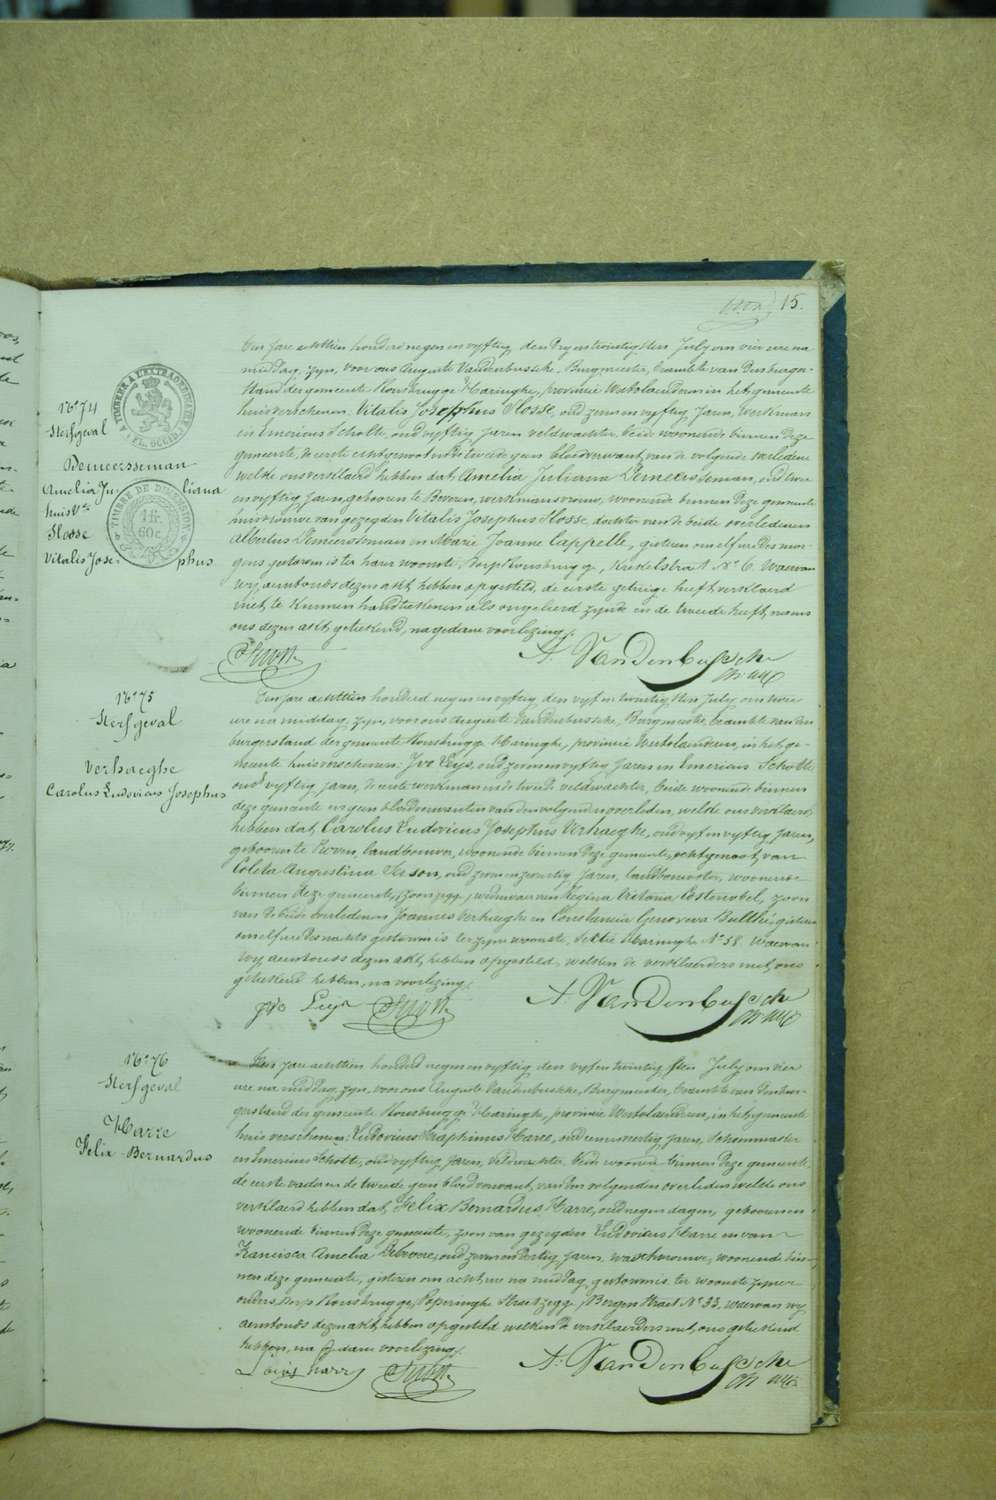 15.
N° 74
Sterfgeval
Demeersseman
Amelia Juliana
huisv.e
Hosse
Vitalis Josephus
TIMBRE DE DIMENSION
1 fr.
60 c.
Ten jare achttien honderd negen en vyftig, den dryentwintigsten July om vier ure na
middag, zyn, voor ons Auguste Vandenbussche, Burgmeester, beambte van den burger-
stand der gemeente Rousbrugge Haringhe, provincie Westvlanderen in het gemeente
huis verschenen, Vitalis Josephus Hosse, oud zeven en vyftig Jaren, Werkman
en Emericus Scholte, oud vyftig jaren veldwachter, beide woonende binnen deze
gemeente, de eerste echtgenoot en de tweede geen bloedverwant van de volgende overledene
welke ons verklaerd hebben dat Amelia Juliana Demeersseman, oud twee
en vyftig jaren, geboren te Beveren, werkmansvrouw, woonende binnen deze gemeente
huisvrouwe van gezegden Vitalis Josephus Hosse, dochter van de beide overledenen
Albertus Demeersseman en Marie Joanne Cappelle, gisteren om elf ure des mor-
gens gestorven is ter harer woonste, dorp Rousbrugge, Kiekelstraet N° 6. Waervan
wy aenstonds dezen akt hebben opgesteld, de eerste getuige heeft verklaerd
niet te kunnen handteekenen als ongeleerd zynde en de tweede heeft, na ons
ons dezen akt geteekend, na gedane voorlezing.
A. VanDenbussche
N° 75
Sterfgeval
Verhaeghe
Carolus Ludovicus Josephus
Ten jare achttien honderd negen en vyftig den vyf en twintigsten July, om twee
ure na middag, zyn, voor ons Auguste Vandenbussche, Burgmeester, beambte van den
burgerstand der gemeente Rousbrugge Haringhe, provincie Westvlanderen, in het ge-
meente huis verschenen: Ivo Leys, oud zeven en vyftig Jaren en Emericus Scholte
oud vyftig jaren, de eerste werkman en de tweede veldwachter, beide woonende binnen
deze gemeente en geen bloedverwanten van den volgenden overleden, welke ons verklaerd
hebben dat, Carolus Ludovicus Josephus Verhaeghe, oud vyf en vyftig jaren,
geboren te Loven, landbouwer, woonende binnen deze gemeente, echtgenoot van
Coleta Augustina Isson, oud zeven en veertig jaren, landbouwster, woonende
binnen deze gemeente, weduwaer van Regina Victoria Costenobel, zoon
van de beide overledenen Joannes Verhaeghe en Constancia Genoveva Bulthé, gisteren
om elf ure des nachts gestorven is ter zyner woonste, sectie Haringhe N° 58. Waervan
wy aenstonds dezen akt, hebben opgesteld, welken de verklaerders met ons
geteekend hebben, na voorlezing.
Ivo Leys
A. VanDenbussche
N° 76
Sterfgeval
Harre
Felix Bernardus
Ten jare achttien honderd negen en vyftig den vyf en twintigsten July om vier
ure na middag, zyn, voor ons Auguste Vandenbussche, Burgmeester, beambte van den bur-
gerstand der gemeente Rousbrugge Haringhe, provincie Westvlanderen, in het gemeente
huis verschenen: Ludovicus Seraphinus Harre, oud een en veertig jaren, Schoenmaker
en Emericus Scholte, oud vyftig jaren, veldwachter, beide woonende binnen deze gemeente
de eerste vader en de tweede geen bloedverwant, van den volgenden overleden welke ons
verklaerd hebben dat, Felix Bernardus Harre, oud negen dagen, geboren en
woonende binnen deze gemeente, zoon van gezegden Ludovicus Harre en van
Francisca Amelia Debroere, oud zeven en dertig jaren, waschvrouwe, woonende bin-
nen deze gemeente, gisteren om acht ure na middag, gestorven is ter woonste zyner
ouders, dorp Rousbrugge, Poperinghe Straet, zegge, Bergen Straet N° 33, waervan wy
aenstonds dezen akt, hebben opgesteld welken de verklaerders met, ons geteekend
hebben, na gedane voorlezing.
Louis harre
A. VanDenbussche